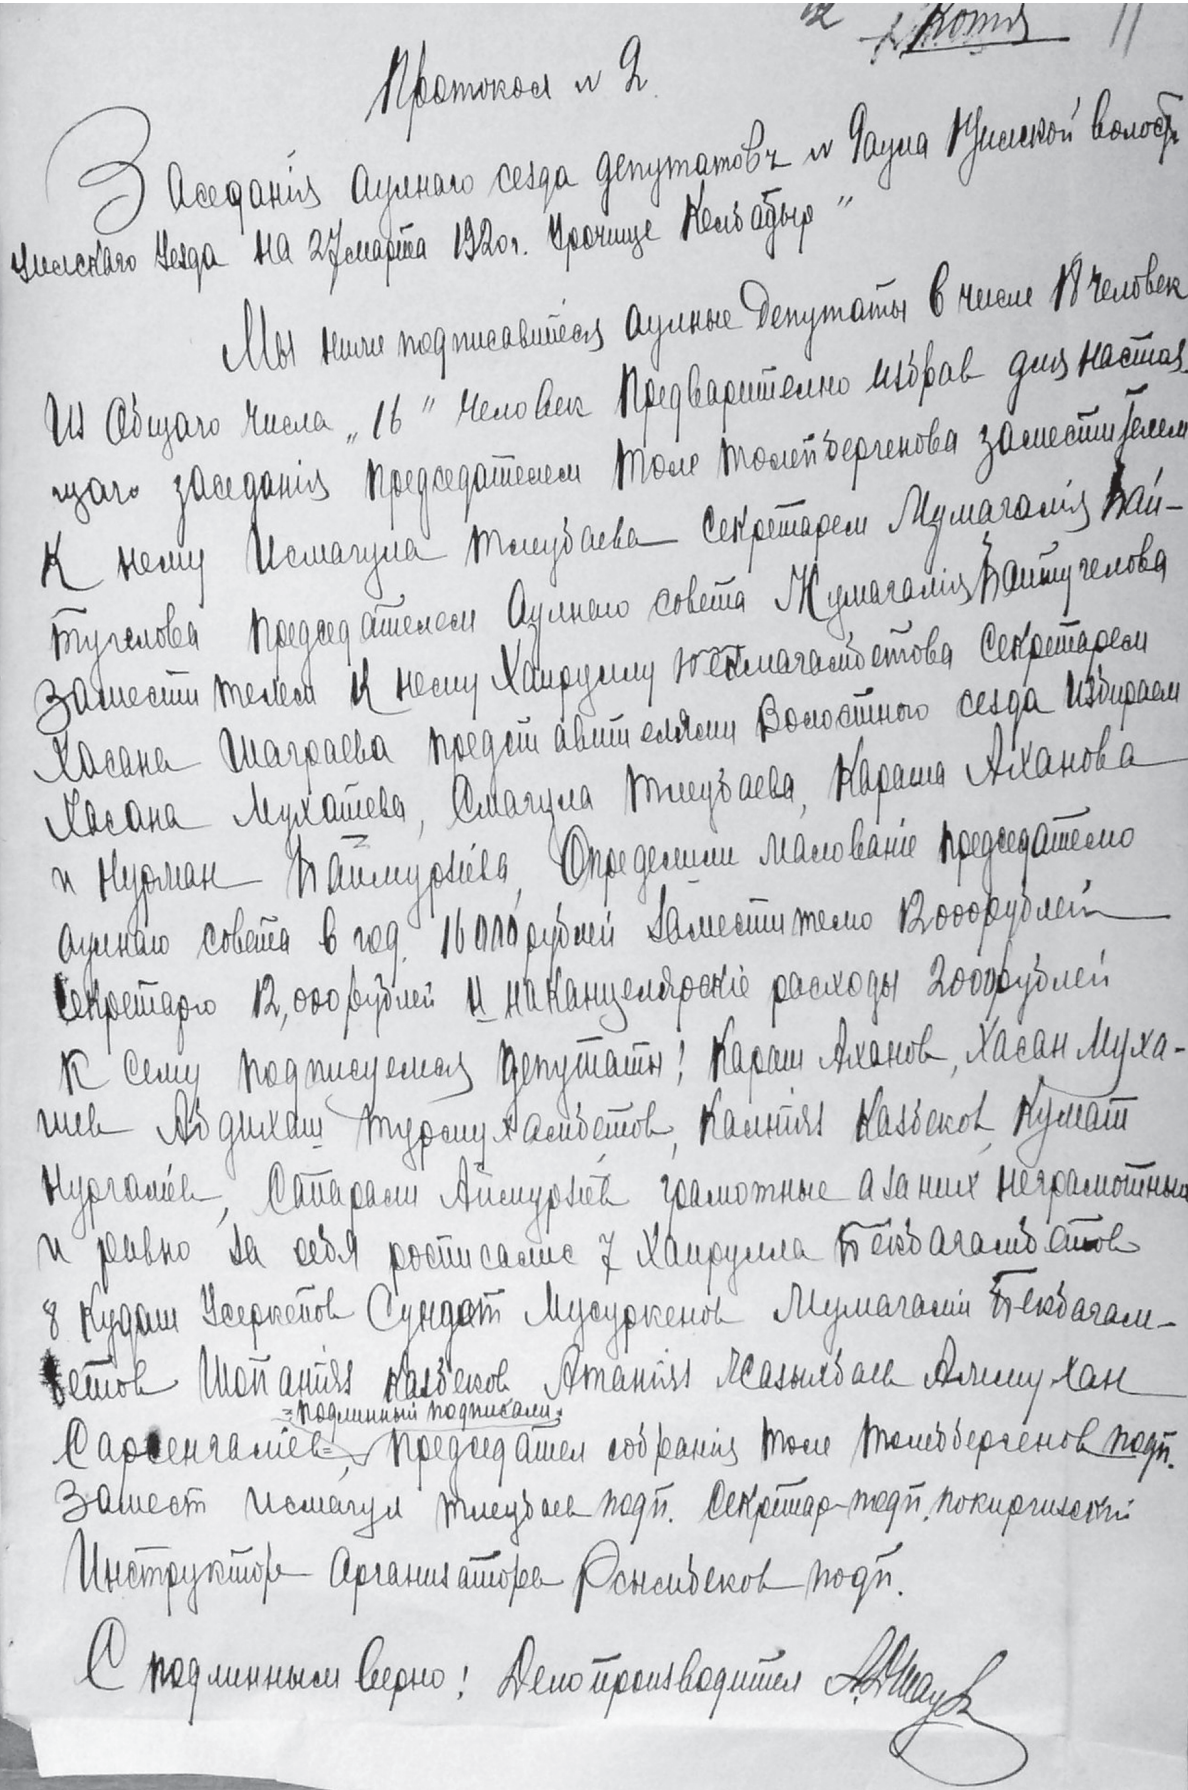 Копия 11
Протокол № 2.
Заседанія аулнаго сезда депутатовъ № 9 аула волости
уезда на 27 марта 1920 г. Урочище
Мы ниже подписавшіеся аулные депутаты в числе 18 человек
Из Общаго числа „16" человек предварително избрав для настоя-
щаго заседанія председателем Толе Толепбергенова заместителем
К нему Исмагула Тлеубаева Секретарем Мумагалія Бай-
тугелова председателем Аулнаго совета Жумагалія Байтугелова
Заместителем К нему Хайруллу Секретарем
Хасана Шаграева представителями Волостного сезда Избираем
Хасана Мухашева, Смагула Тлеубаева, Караша Аханова
и Нурман Баймурзіева, Определили жалованіе председателю
аулнаго совета в год. 16000 рублей Заместителю 12000 рублей
Секретарю 12,000 рублей и на канцелярскіе расходы 2000 рублей
К сему подписуемся депутаты! Караш Аханов, Хасан Муха-
шев Абдихаш Турмухамбетов, Калніяз Казбеков, Кумат
Нургаліев, Сапарали Аймурзіев грамотные а за них неграмотных
и равно за себя росписалис 7 Хайрулла Бекбагамбетов
8 Кудаш Усеркепов Сундет Мусуркенов Мумагали Бекбагам-
бетов Шопанияз Казбеков Атанияз Жазыкбаев Алмухан
=подлинный подписали=
Сарсенгаліев=, председател собранія Толе Толебергенов подп.
Замест Исмагул Тлеубаев подп. Секретар подп. покиргизский
Инструктор Организатор подп.
С подлинным верно! Делопроизводител